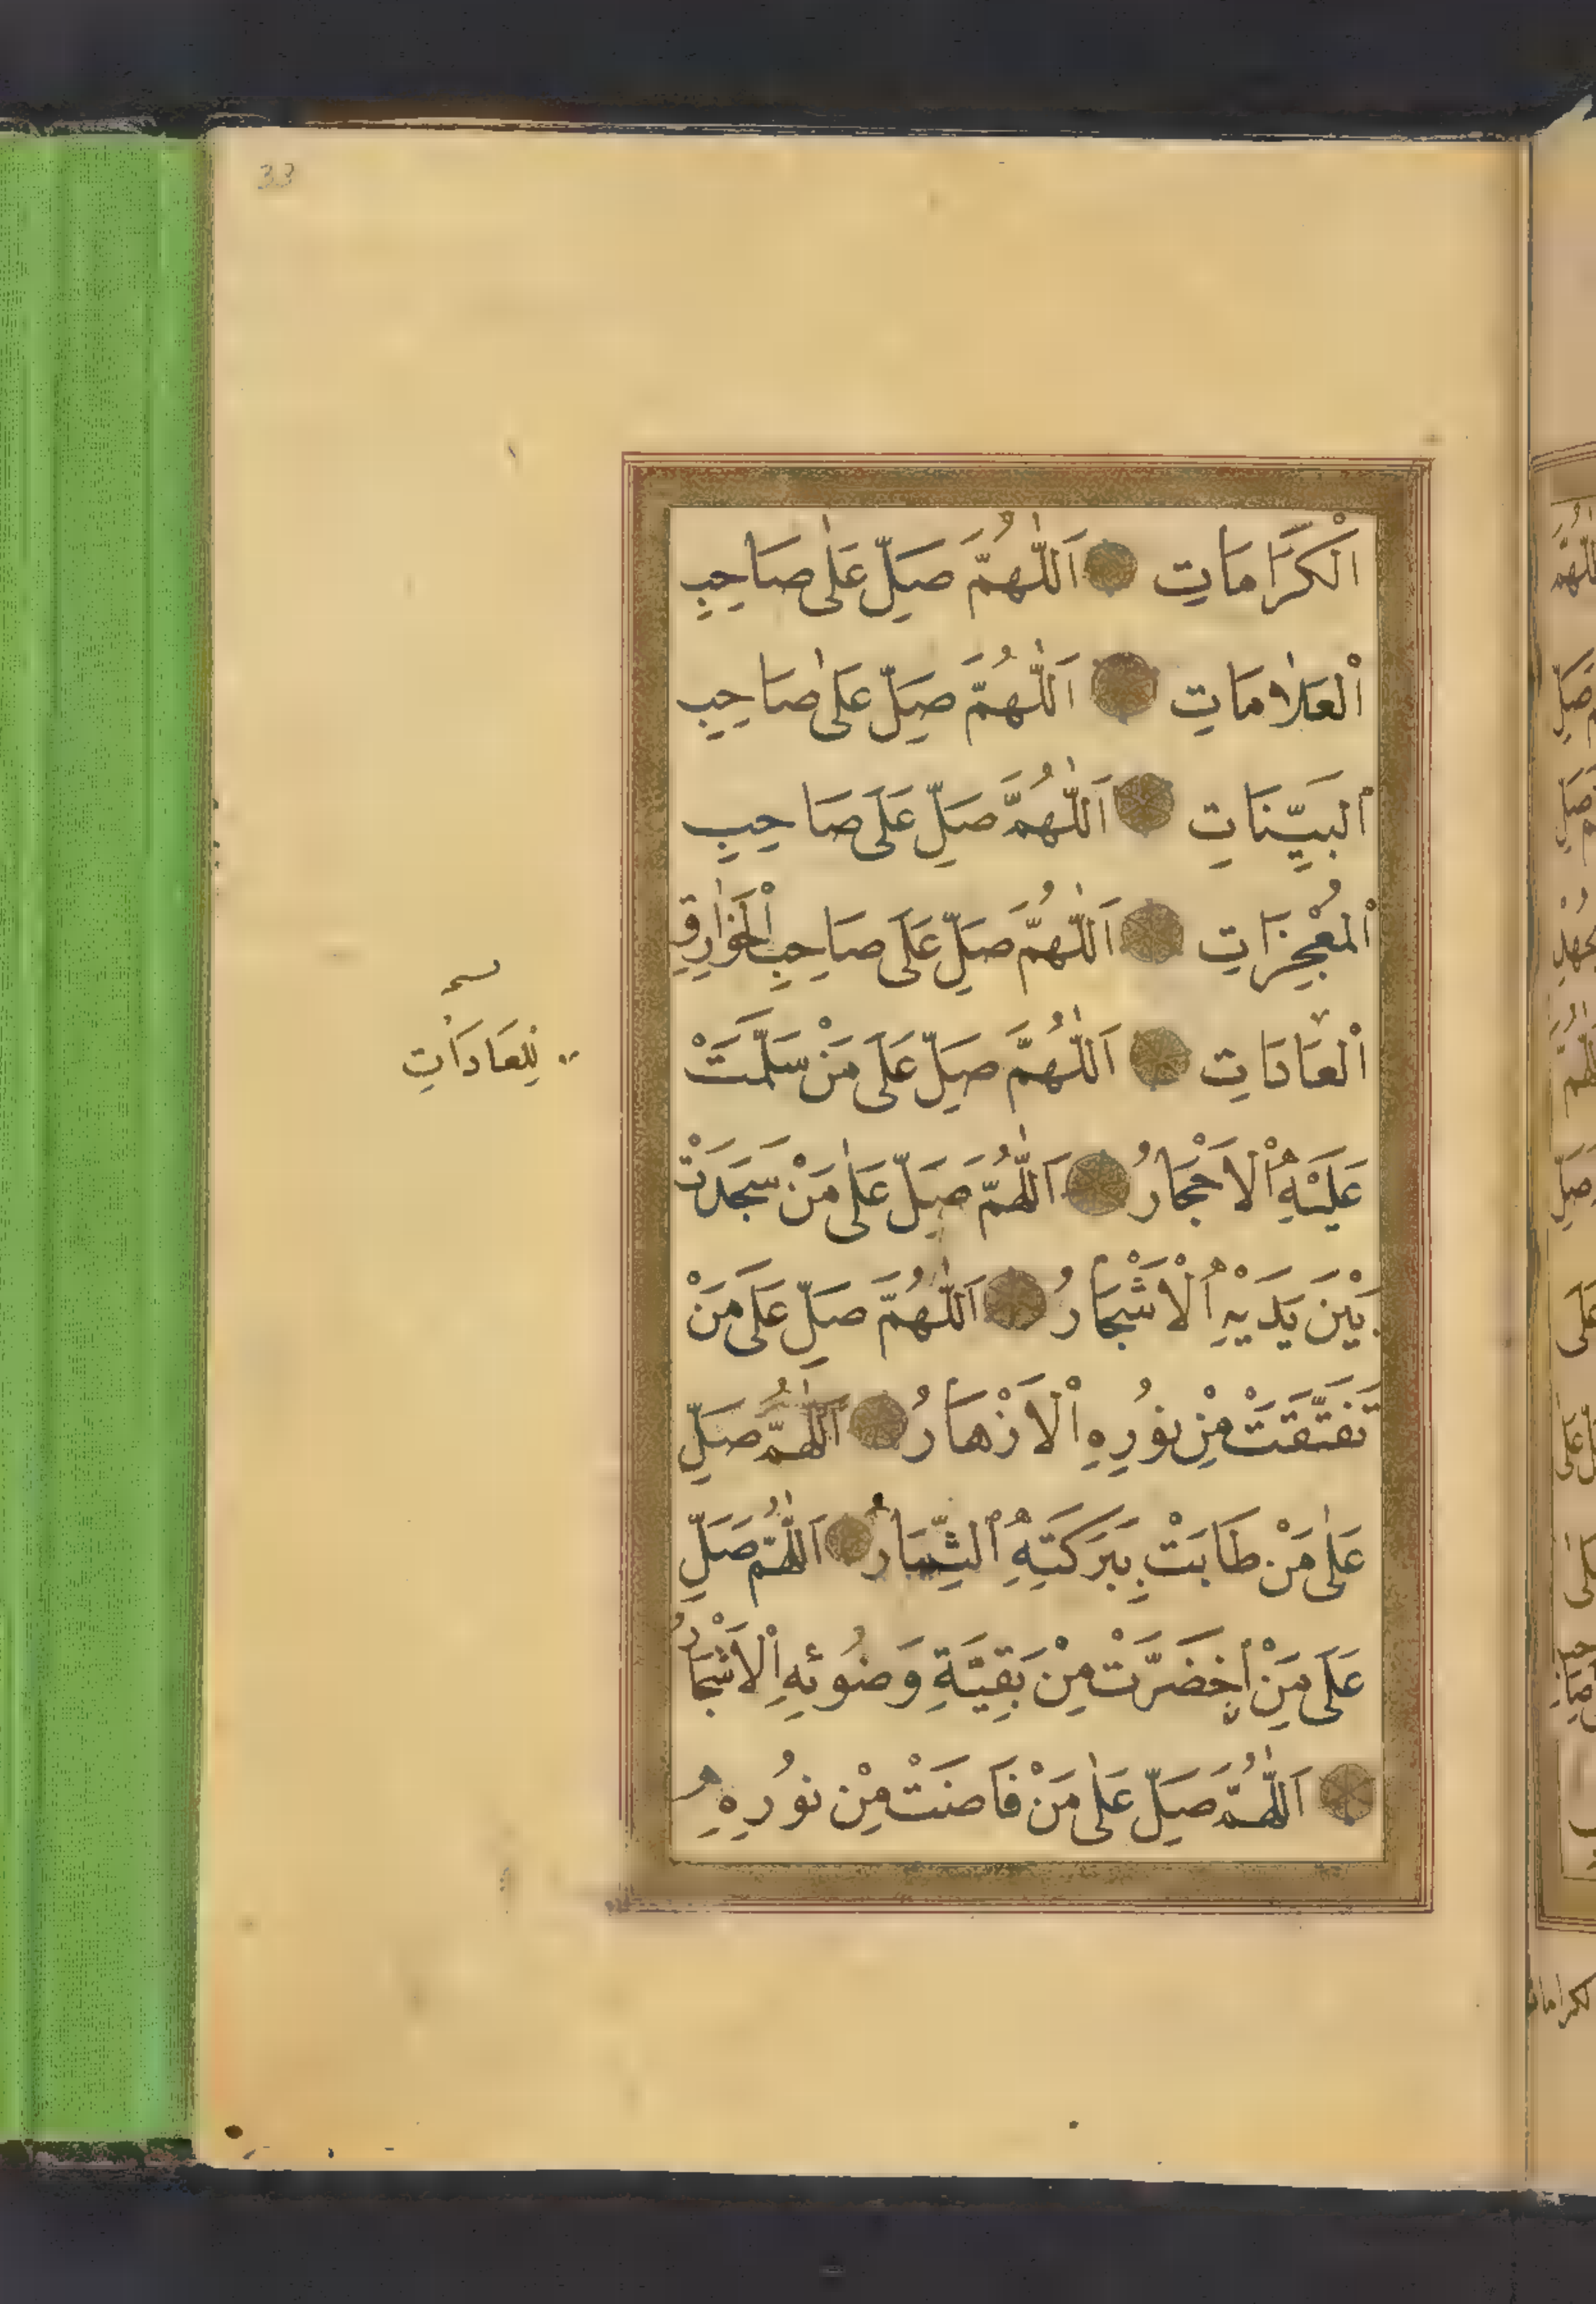 33
الْكَرَامَاتِ اَللّٰهُمَّ صَلِّ عَلٰى صَاحِبِ
الْعَلَامَاتِ اَللّٰهُمَّ صَلِّ عَلٰى صَاحِبِ
الْبَيِّنَاتِ اَللّٰهُمَّ صَلِّ عَلَى صَاحِبِ
الْمُعْجِزَاتِ اَللّٰهُمَّ صَلِّ عَلَى صَاحِبِ الْخَوَارِقِ
الْعَادَاتِ اَللّٰهُمَّ صَلِّ عَلَى مَنْ سَلَّمَتْ
لِلْعَادَاتِ
عَلَيْهِ الْاَحْجَارُ اَللّٰهُمَّ صَلِّ عَلٰى مَنْ سَجَدَتْ
بَيْنَ يَدَيْهِ الْاَشْجَارُ اَللّٰهُمَّ صَلِّ عَلَى مَنْ
تَفَتَّقَتْ مِنْ نُورِهِ الْاَزْهَارُ اَللّٰهُمَّ صَلِّ
عَلٰى مَنْ طَابَتْ بِبَرَكَتِهِ الثِّمَارُ اَللّٰهُمَّ صَلِّ
عَلَى مَنِ اخْضَرَّتْ مِنْ بَقِيَّةِ وَضُوئِهِ الْاَشْجَارُ
اَللّٰهُمَّ صَلِّ عَلٰى مَنْ فَاضَتْ مِنْ نُورِهِ